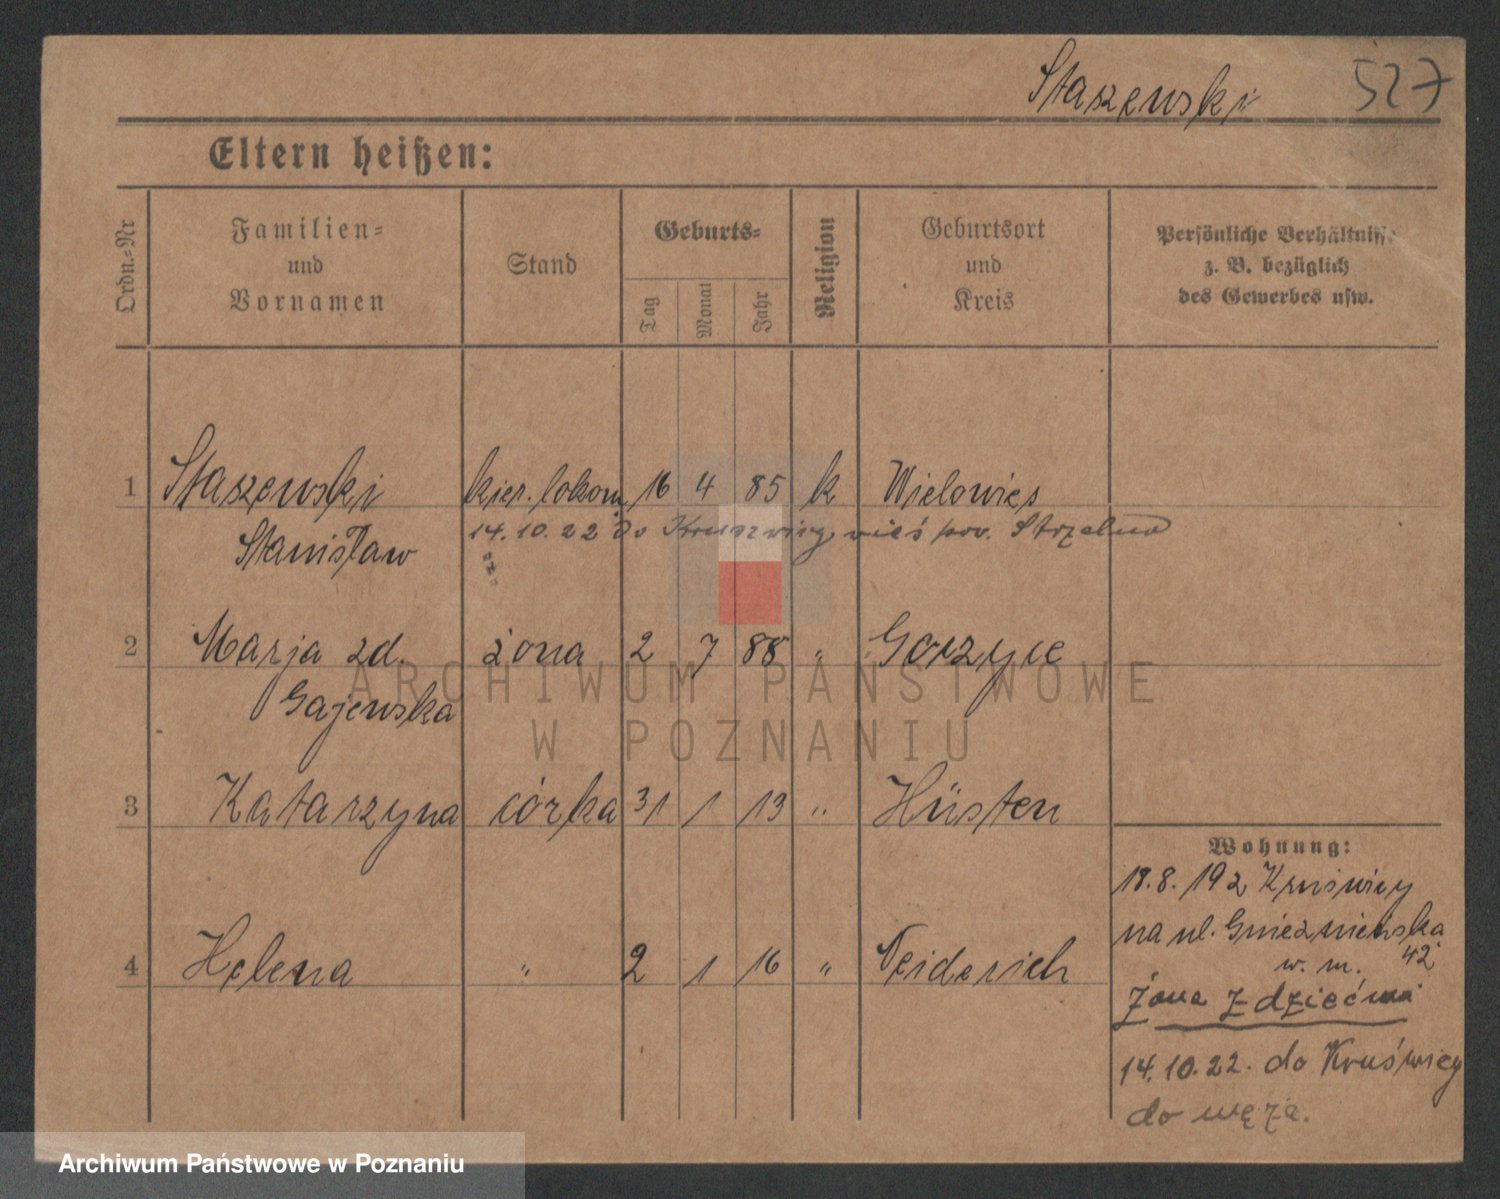 Staszewski 527
Eltern heißen:
Ordn.-Nr
Familien-
und
Vornamen
Stand
Geburts-
Tag
Monat
Jahr
Religion
Geburtsort
und
Kreis
Persönliche Verhältnisse
z. B. bezüglich
des Gewerbes usw.
1 Staszewski kier. lokom. 16 4 85 k Wielowieś
Stanisław
14.10.22 do Kruszwicy wieś pow. Strzelno
2 Marja zd. żona 2 7 88 " Gorzyce
Gajewska
3 Katarzyna córka 31 1 13 " Hüsten
4 Helena " 2 1 16 " Neiderich
Wohnung:
18.8.192 Kruświcy
na ul. Gnieznieńska
w. m. 42
Żona z dziećmi
14.10.22. do Kruświcy
do męża.
ARCHIWUM PAŃSTWOWE
W POZNANIU
Archiwum Państwowe w Poznaniu